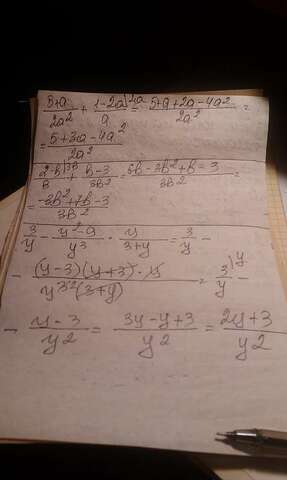 (5+a)/(2a²) + (1-2a)/a |2a = (5+a+2a-4a²)/(2a²) =
= (5+3a-4a²)/(2a²)
(2-в)/в |3в + (в-3)/(3в²) = (6в-3в²+в-3)/(3в²) =
= (-3в²+7в-3)/(3в²)
3/y - (y²-9)/y³ · y/(3+y) = 3/y -
- ((y-3)(y+3)·y)/(y³ ²(3+y)) = 3/y |y
- (y-3)/y² = (3y-y+3)/y² = (2y+3)/y²